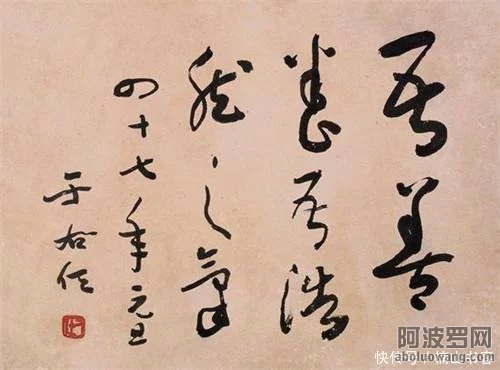 吾善
養吾浩
然之氣
四十七年元旦
于右任
阿波罗网
aboluowang.com
快传号